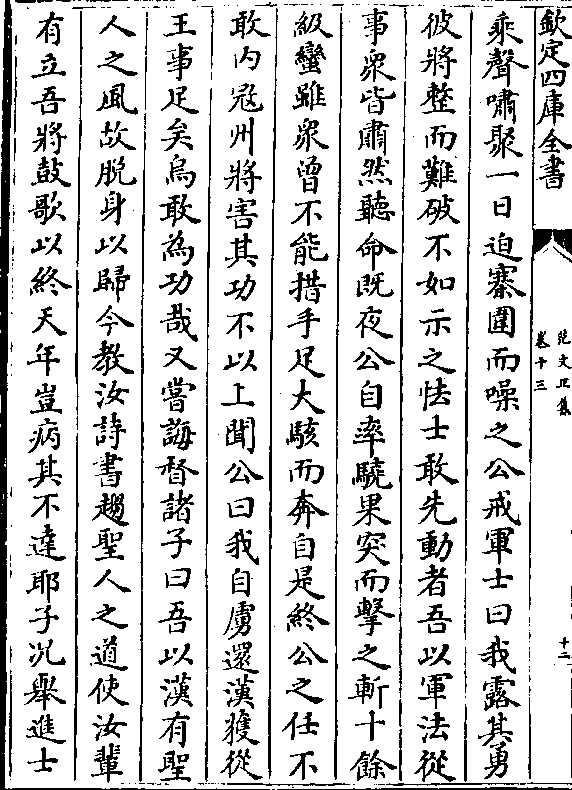 欽定四庫全書
范文正集
卷十三
十二
乘聲嘯聚一日迫寨圍而噪之公戒軍士曰我露其勇
彼將整而難破不如示之怯士敢先動者吾以軍法從
事衆皆肅然聽命既夜公自率驍果突而擊之斬十餘
級蠻雖衆曾不能措手足大駭而奔自是終公之任不
敢内冦州將害其功不以上聞公曰我自虜還漢獲從
王事足矣烏敢為功哉又嘗誨督諸子曰吾以漢有聖
人之風故脫身以歸今教汝詩書趨聖人之道使汝輩
有立吾將鼓歌以終天年豈病其不達耶子況舉進士